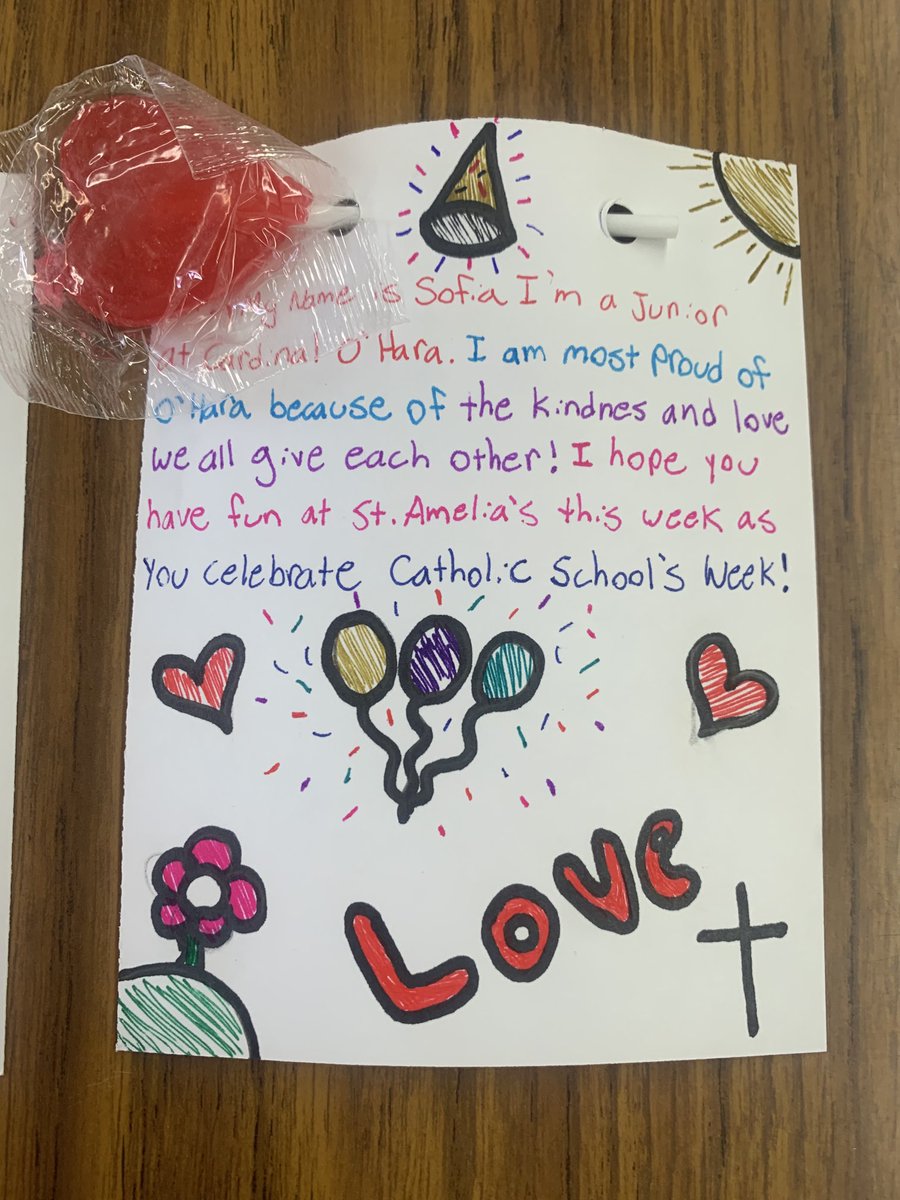 My Name is Sofia I'm a Junior
at Cardinal O'Hara. I am most proud of
O'Hara because of the kindnes and love
we all give each other! I hope you
have fun at St. Amelia's this week as
You celebrate Catholic School's Week!
Love